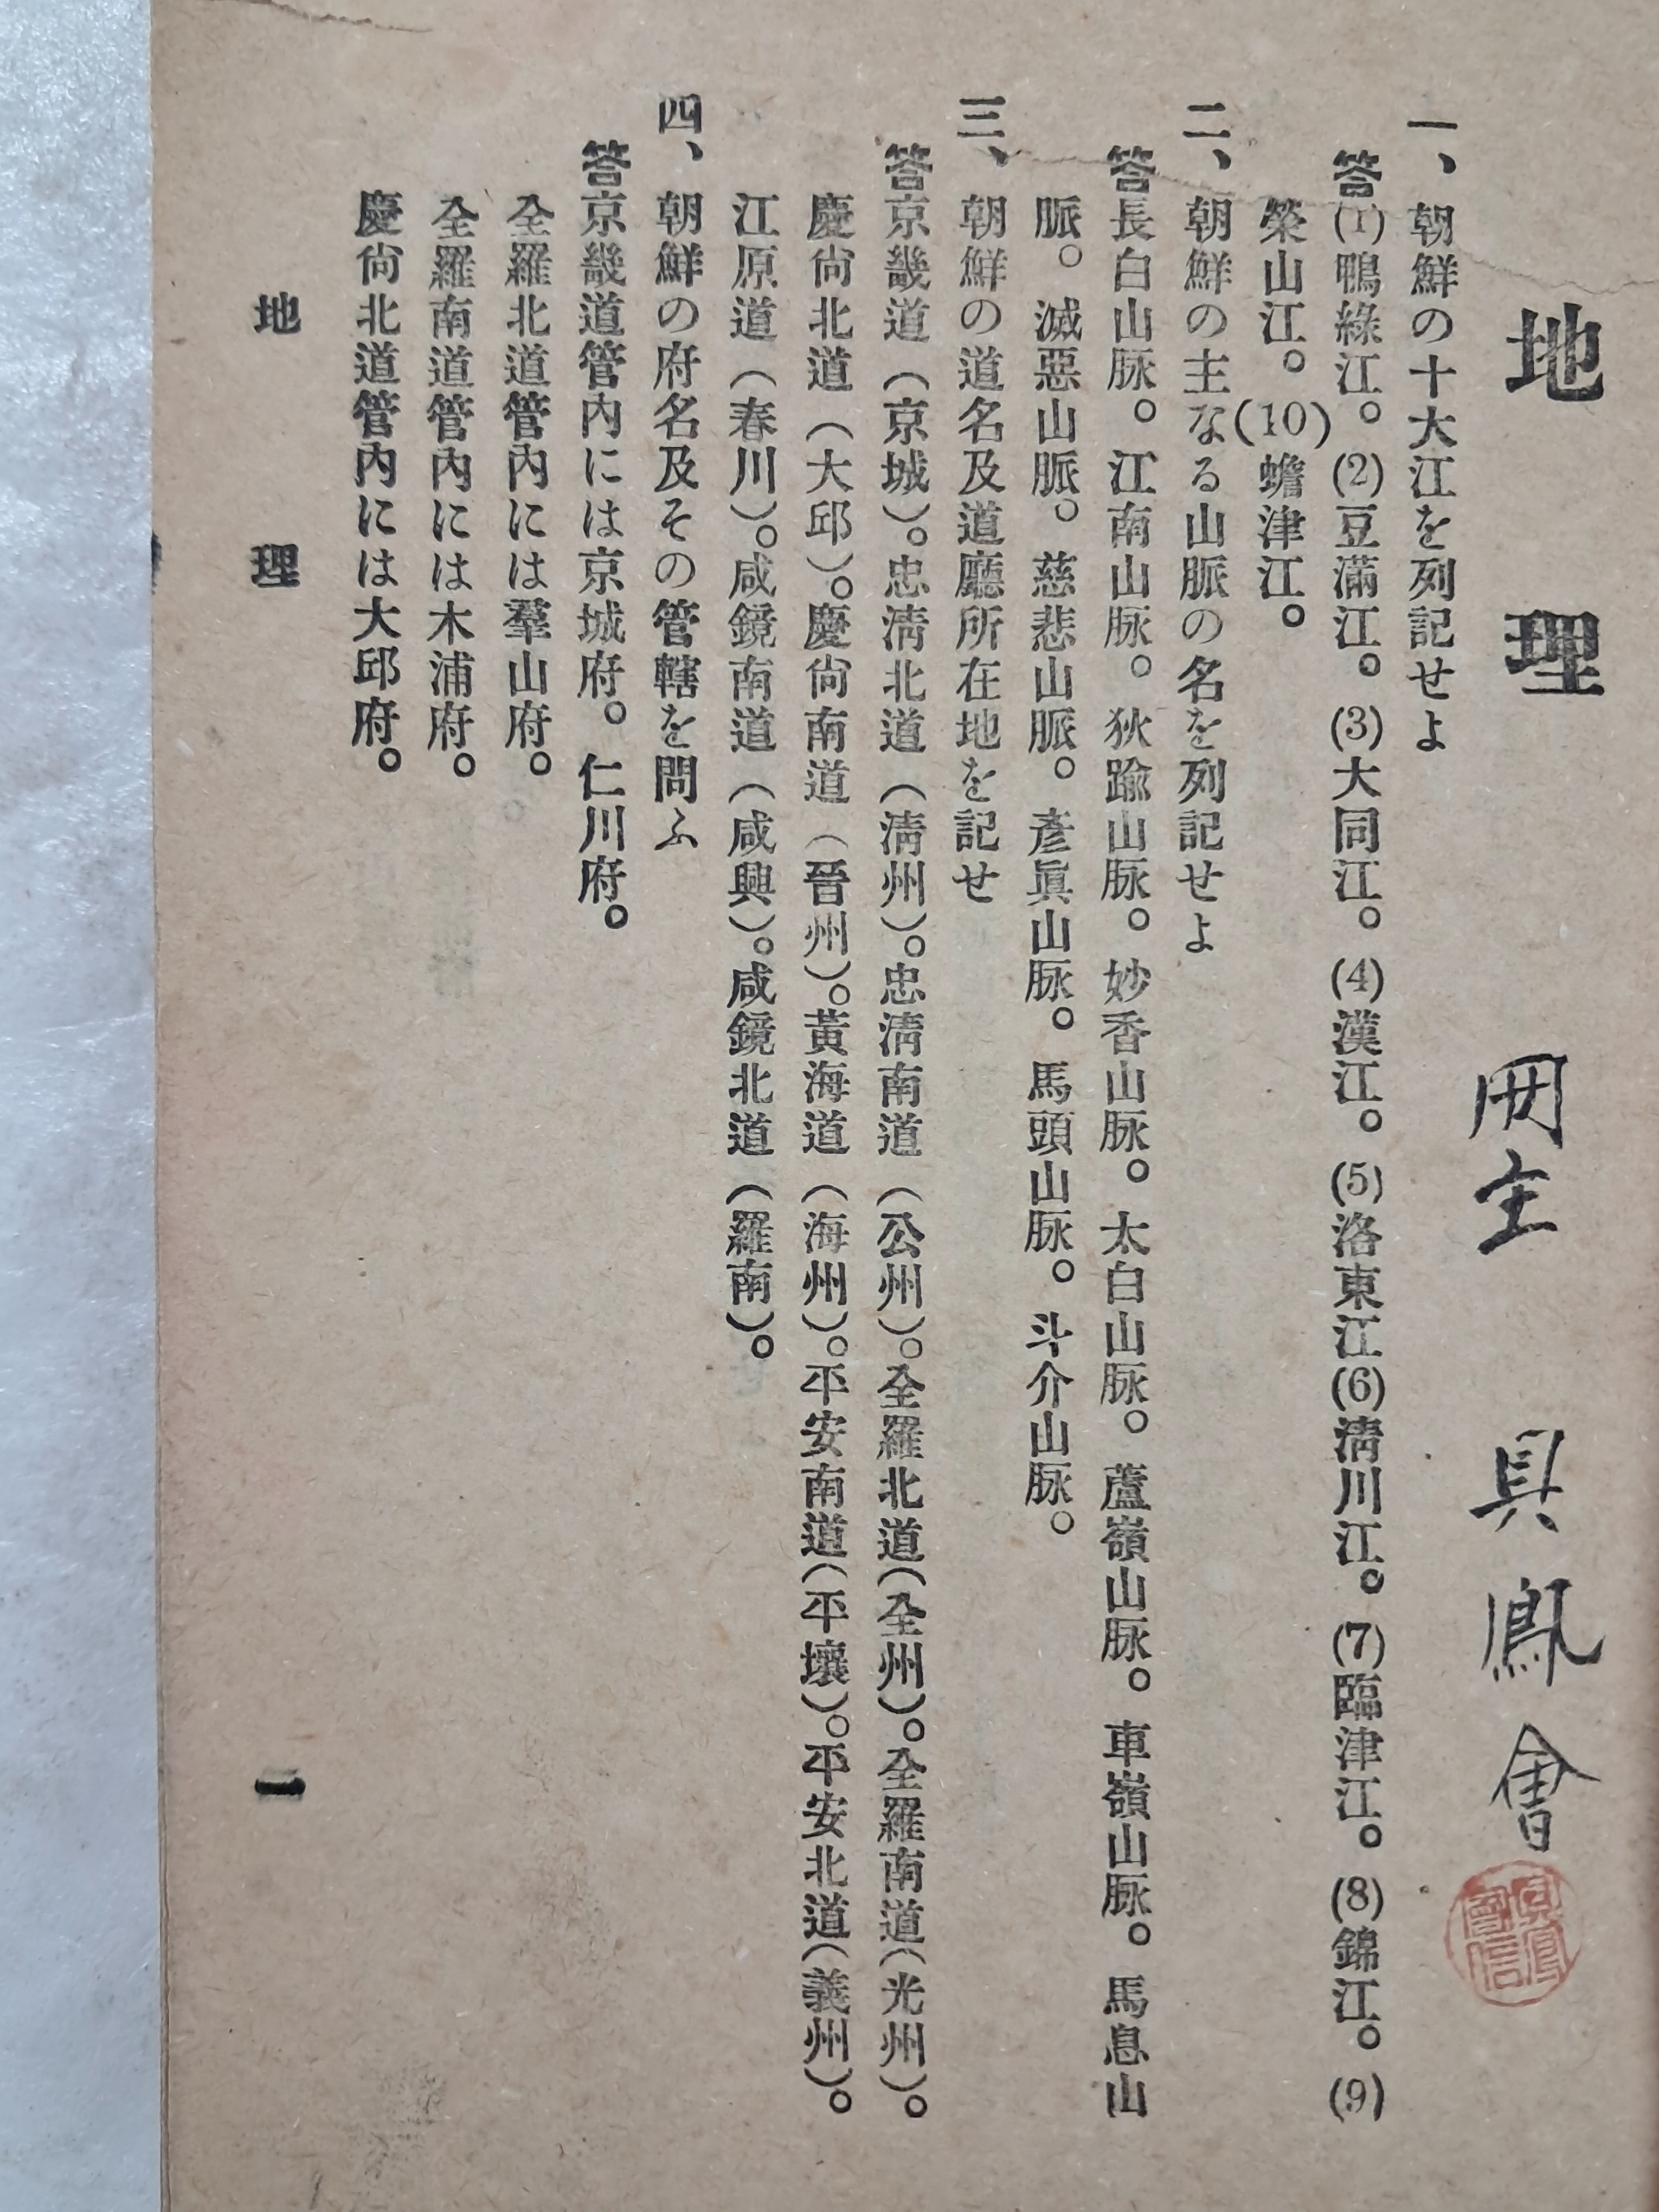 地理
冊主 具鳳會
一、朝鮮の十大江を列記せよ
答(1)鴨綠江。(2)豆滿江。(3)大同江。(4)漢江。(5)洛東江(6)淸川江。(7)臨津江。(8)錦江。(9)
榮山江。(10)蟾津江。
二、朝鮮の主なる山脈の名を列記せよ
答長白山脉。江南山脉。狄踰山脉。妙香山脉。太白山脉。蘆嶺山脉。車嶺山脉。馬息山
脈。滅惡山脈。慈悲山脈。彥眞山脉。馬頭山脉。斗介山脉。
三、朝鮮の道名及道廳所在地を記せ
答京畿道(京城)。忠淸北道(淸州)。忠淸南道(公州)。全羅北道(全州)。全羅南道(光州)。
慶尙北道(大邱)。慶尙南道(晉州)。黃海道(海州)。平安南道(平壤)。平安北道(義州)。
江原道(春川)。咸鏡南道(咸興)。咸鏡北道(羅南)。
四、朝鮮の府名及その管轄を問ふ
答京畿道管內には京城府。仁川府。
全羅北道管內には羣山府。
全羅南道管內には木浦府。
慶尙北道管內には大邱府。
地理 一